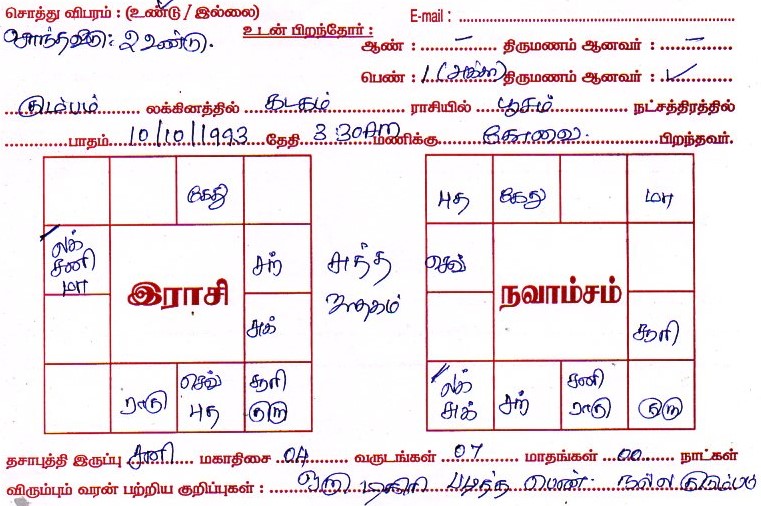 சொத்து விபரம் : (உண்டு / இல்லை) E-mail :
சொந்தவீடு: 2 உண்டு. உடன் பிறந்தோர் : ஆண் : – திருமணம் ஆனவர் : –
பெண் : 1 (அக்கா) திருமணம் ஆனவர் : ✓
கும்பம் லக்கினத்தில் கடகம் ராசியில் பூசம் நட்சத்திரத்தில்
பாதம் 10/10/1993 தேதி 3:30PM மணிக்கு கோவை. பிறந்தவர்.
கேது
லக்
சனி
மா
சந்
சுக்
ராகு
செவ்
புத
சூரி
குரு
இராசி
சுத்த
ஜாதகம்
புத கேது மா
செவ்
சூரி
லக்
சுக்
சந்
சனி
ராகு
குரு
நவாம்சம்
தசாபுத்தி இருப்பு சனி மகாதிசை 04 வருடங்கள் 07 மாதங்கள் 00 நாட்கள்
விரும்பும் வரன் பற்றிய குறிப்புகள் : ஒரு டிகிரி படித்த பெண். நல்ல குடும்பம்